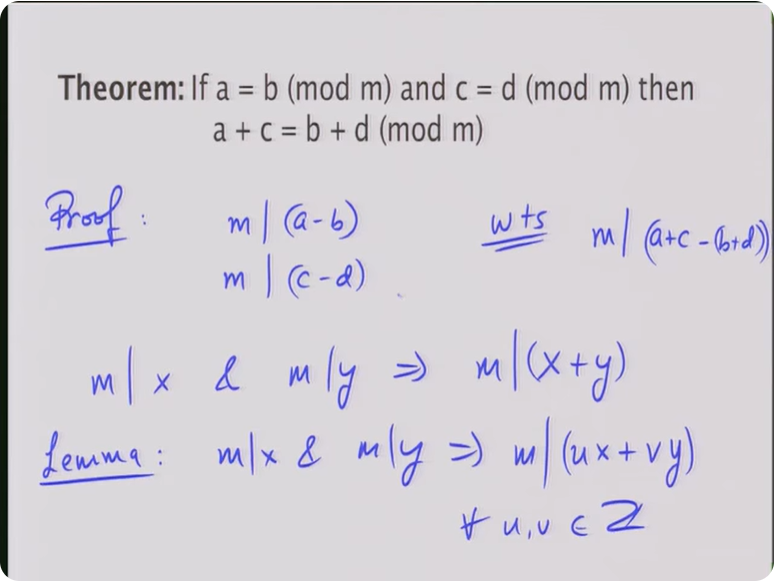 Theorem: If a = b (mod m) and c = d (mod m) then
a + c = b + d (mod m)
Proof : m | (a-b) wts m | (a+c - (b+d))
m | (c-d)
m | x & m | y ⇒ m | (x+y)
Lemma : m|x & m|y ⇒ m | (ux + vy)
∀ u,v ∈ ℤ